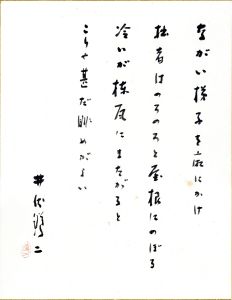 ながい梯子を廂にかけ
拙者はのろのろと屋根にのぼる
冷いが棟瓦にまたがると
こりや甚だ眺めがよい
井伏鱒二